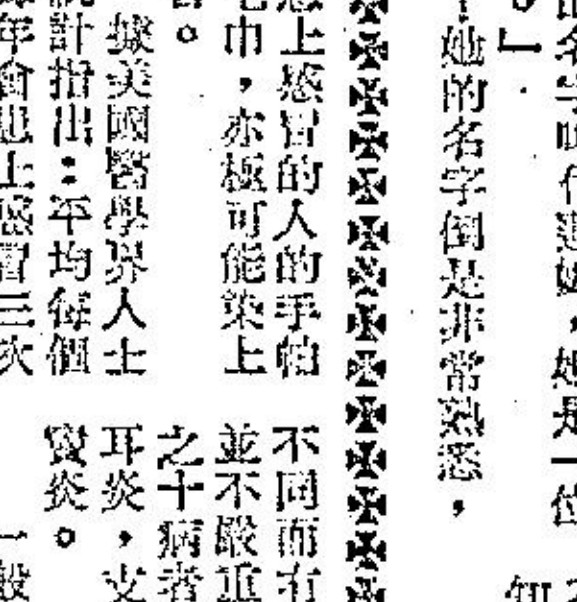 的名字叫
，她是一位
。」
她的名字倒是非常熟悉，
上感冒的人的手帕
巾，亦極可能染上
。
據美國醫學界人士
統計指出：平均每個
年會患上感冒三次
不同而有
並不嚴重
之十病者
耳炎，支
竇炎。
一般